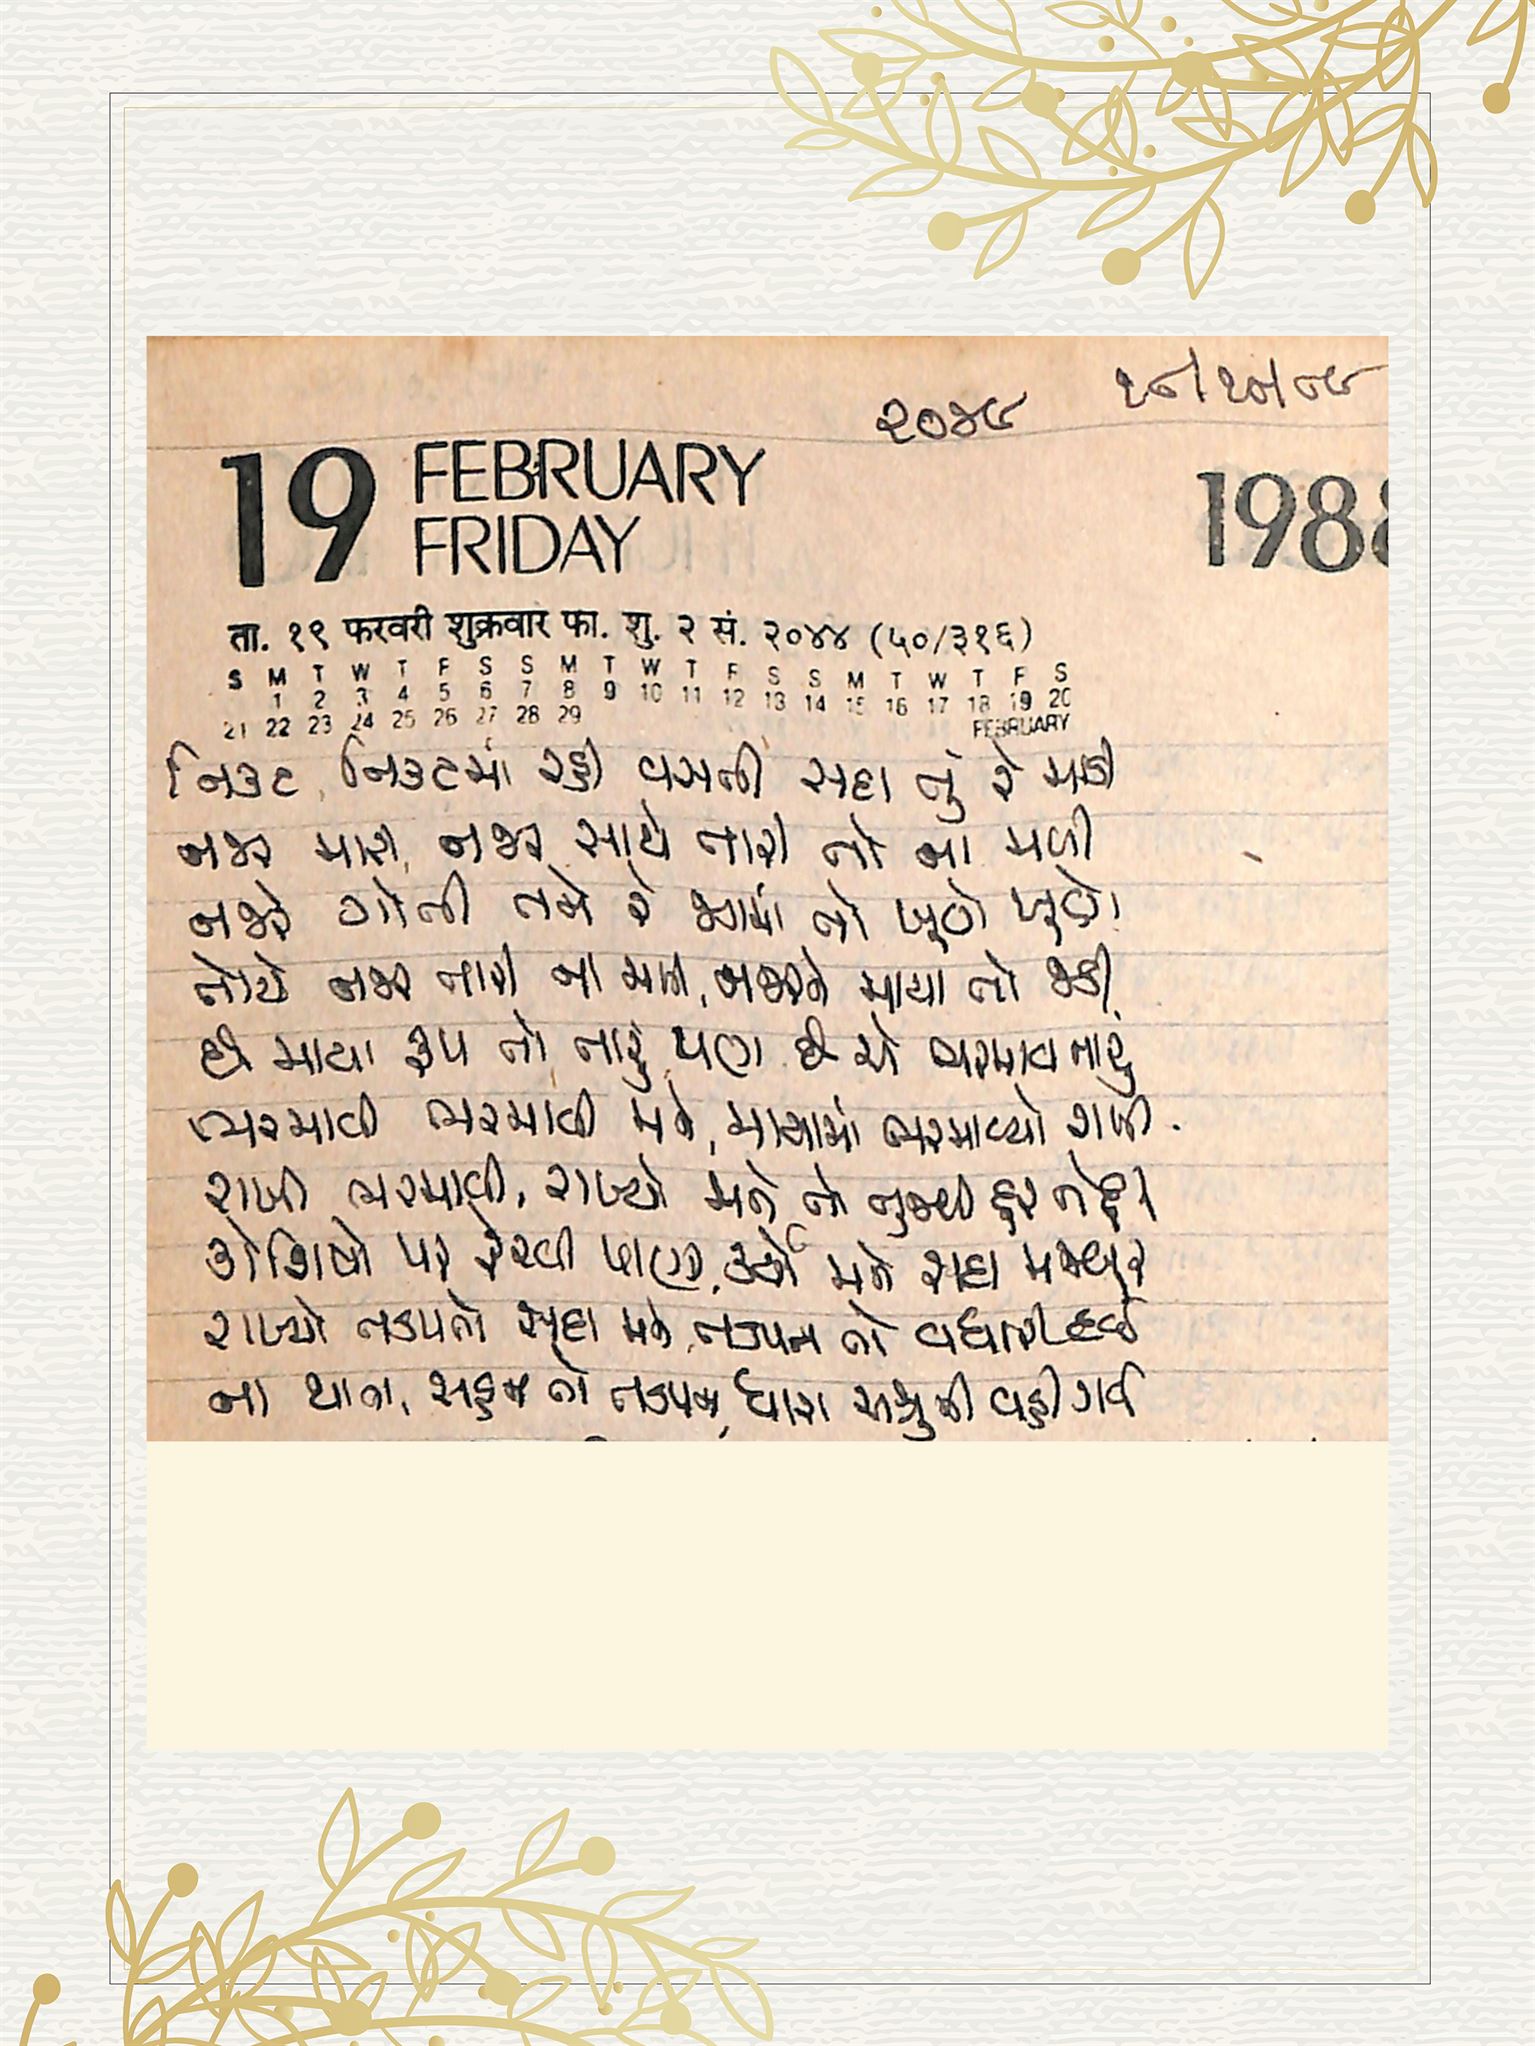 ૨૦૪૮ ૧૮/૧૦/૮૮
19 FEBRUARY
FRIDAY
198
ता. १९ फरवरी शुक्रवार फा. शु. २ सं. २०४४ (५०/३१६)
S M T W T F S S M T W T F S S M T W T F S
1 2 3 4 5 6 7 8 9 10 11 12 13 14 15 16 17 18 19 20
21 22 23 24 25 26 27 28 29 FEBRUARY
નિકટ નિકટમાં રહી વસતી સદા તું રે માડી
નજર મારી, નજર સાથે તારી તો ના મળી
નજરે ગોતી તને રે જગમાં તો ખૂણે ખૂણે
તોયે નજર તારી ના મળી, નજરને માયા તો જડી
છે માયા રૂપ તો તારું પણ છે એ ભરમાવનારું
ભરમાવી ભરમાવી મને, માયામાં ભરમાવ્યો રાખી.
રાખી ભરમાવી, રાખ્યો મને તો તુજથી દૂર ને દૂર
કોશિશો પર ફેરવી પાણી, કર્યો મને સદા મજબૂર
રાખ્યો તડપતો સદા મને, તડપન તો વધારી દઈ
ના થાતા, સહન તો તડપન, ધારા અશ્રુની વહી ગઈ